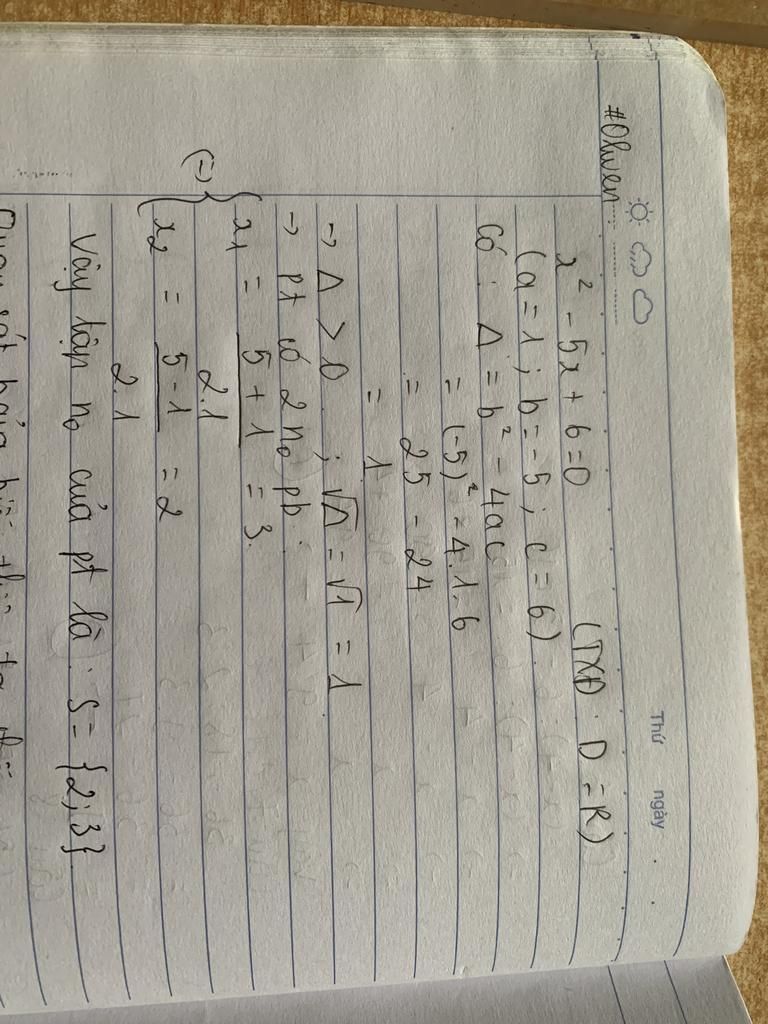 Thứ ngày
#Olwen
x² - 5x + 6 = 0 (TXĐ: D = R)
(a = 1; b = -5; c = 6)
Có: Δ = b² - 4ac
= (-5)² - 4.1.6
= 25 - 24
= 1
→ Δ > 0; √Δ = √1 = 1
→ pt có 2 no pb.
(=) { x₁ = (5 + 1)/2.1 = 3.
x₂ = (5 - 1)/2.1 = 2
Vậy tập no của pt là: S = {2; 3}.